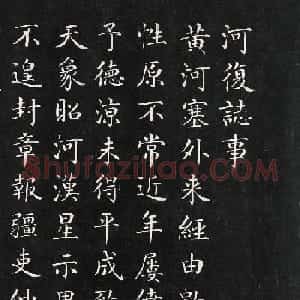 河復誌事
黃河塞外来經由
性原不常近年屢
予德涼未得平成
天象昭河漢星示
不遑封章報疆吏
Shufaziliao.com